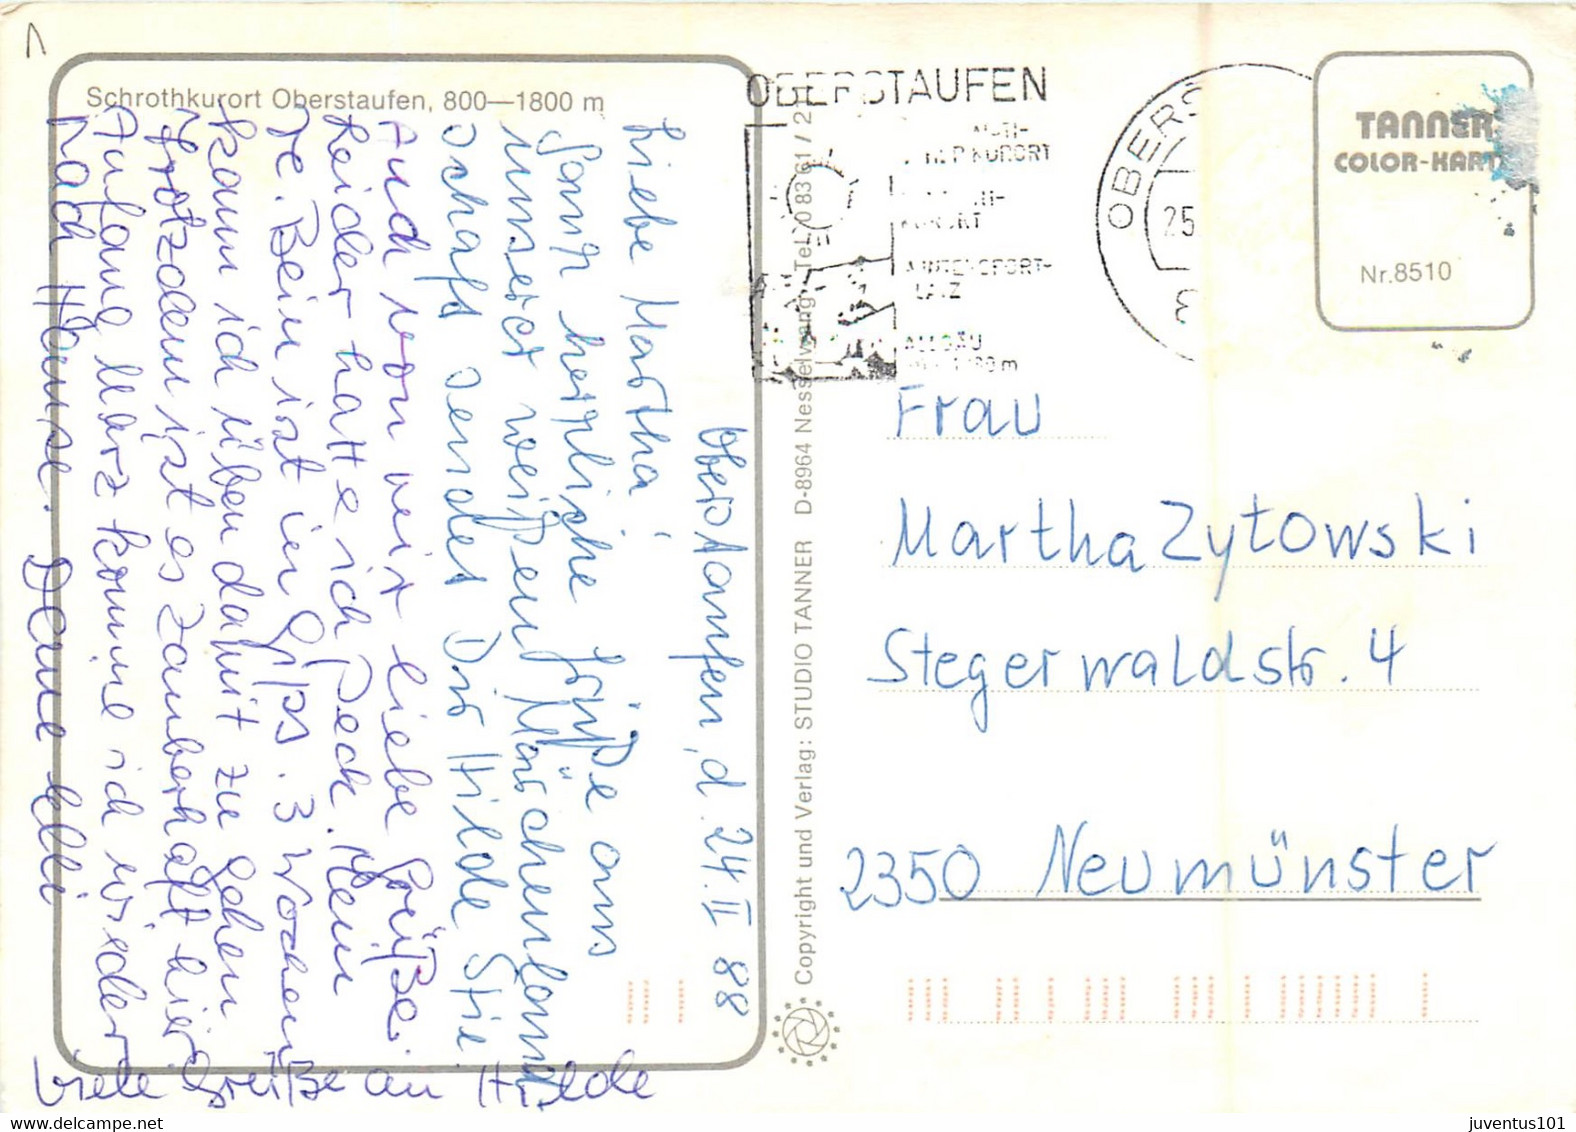 Schrothkurort Oberstaufen, 800—1800 m
Oberstaufen, d. 24. II 88
Liebe Martha
herzliche Grüße aus
unserer weißen Märchenland
schaft sendet Dir Hilde
Auch von mir liebe Grüße.
Leider hatte ich Pech. Mein
re. Bein ist in Gips. 3 Wochen
kann ich üben damit zu gehen
Trotzdem ist es zauberhaft hier
Anfang März komme ich wieder
nach Hause. Deine Elli
Viele Grüße an Hilde
Copyright und Verlag: STUDIO TANNER D-8964 Nesselwang Tel. 0 83 61 /
OBERSTAUFEN
KURORT
ALLGÄU
OBERS
25.
TANNER
COLOR-KART
Nr.8510
Frau
Martha Zytowski
Stegerwaldstr. 4
2350 Neumünster
juventus101